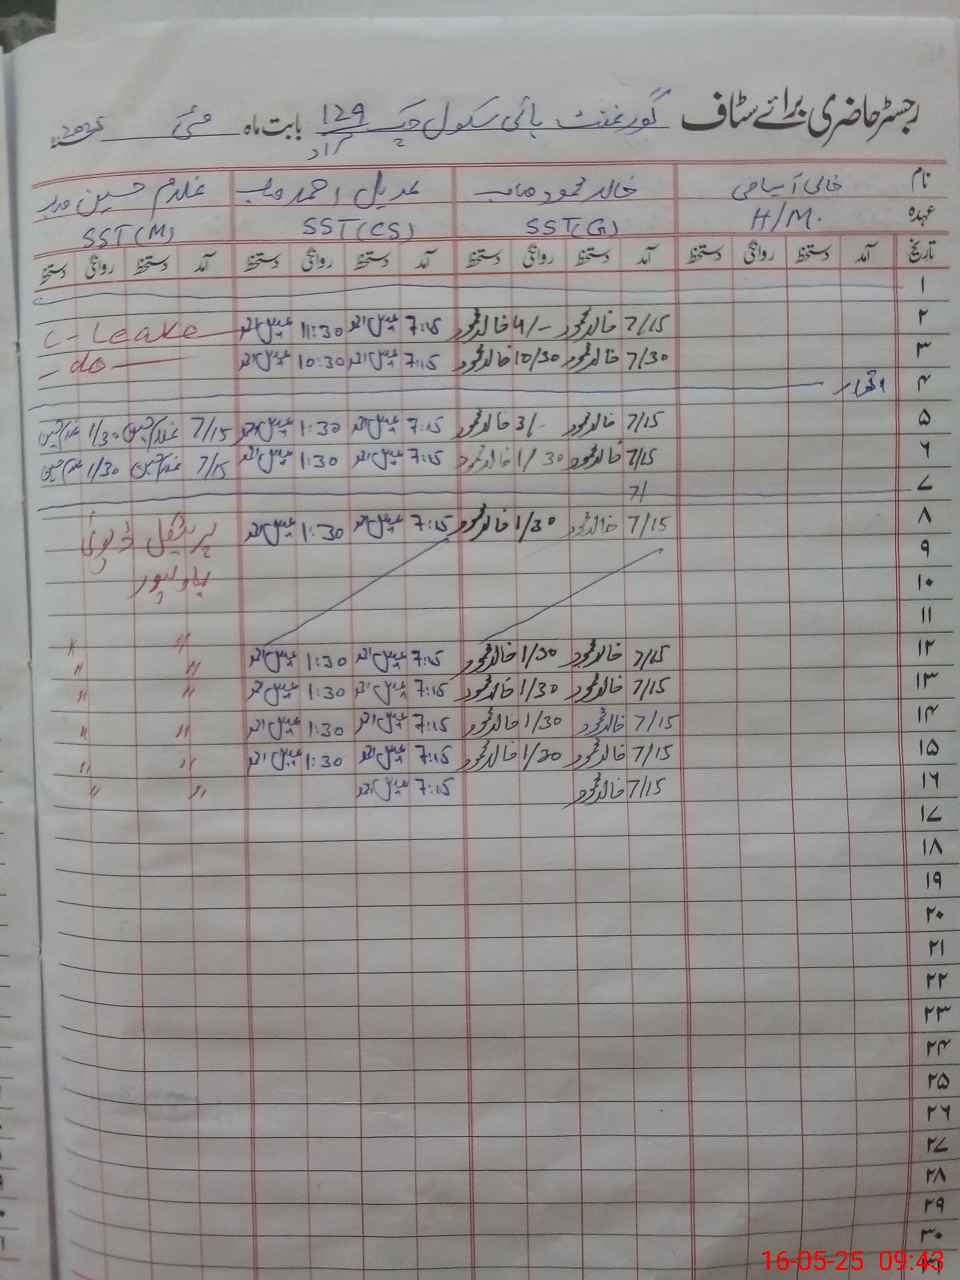 رجسٹر حاضری برائے سٹاف گورنمنٹ ہائی سکول چک 129 بابت ماہ مئی 2025
نام خالی آسامی خالد محمود صاحب عدیل احمد صاحب غلام حسین صاحب
عہدہ H/M. SST(G) SST(CS) SST(M)
تاریخ آمد دستخط روانگی دستخط آمد دستخط روانگی دستخط آمد دستخط روانگی دستخط آمد دستخط روانگی دستخط
۱
۲ 7/15 خالد محمود 4/- خالد محمود 7:15 عدیل احمد 11:30 عدیل احمد C-Leake
۳ 7/30 خالد محمود 10/30 خالد محمود 7:15 عدیل احمد 10:30 عدیل احمد -do-
۴ اتوار
۵ 7/15 خالد محمود 3/- خالد محمود 7:15 عدیل احمد 1:30 عدیل احمد 7/15 غلام حسین 1/30 غلام حسین
۶ 7/15 خالد محمود 1/30 خالد محمود 7:15 عدیل احمد 1:30 عدیل احمد 7/15 غلام حسین 1/30 غلام حسین
۷ 7/
۸ 7/15 خالد محمود 1/30 خالد محمود 7:15 عدیل احمد 1:30 عدیل احمد پریکٹیکل ڈیوٹی
۹ بہاولپور
۱۰
۱۱
۱۲ 7/15 خالد محمود 1/30 خالد محمود 7:15 عدیل احمد 1:30 عدیل احمد " "
۱۳ 7/15 خالد محمود 1/30 خالد محمود 7:15 عدیل احمد 1:30 عدیل احمد " "
۱۴ 7/15 خالد محمود 1/30 خالد محمود 7:15 عدیل احمد 1:30 عدیل احمد " "
۱۵ 7/15 خالد محمود 1/30 خالد محمود 7:15 عدیل احمد 1:30 عدیل احمد " "
۱۶ 7/15 خالد محمود 7:15 عدیل احمد " "
۱۷
۱۸
۱۹
۲۰
۲۱
۲۲
۲۳
۲۴
۲۵
۲۶
۲۷
۲۸
۲۹
۳۰
16-05-25 09:43